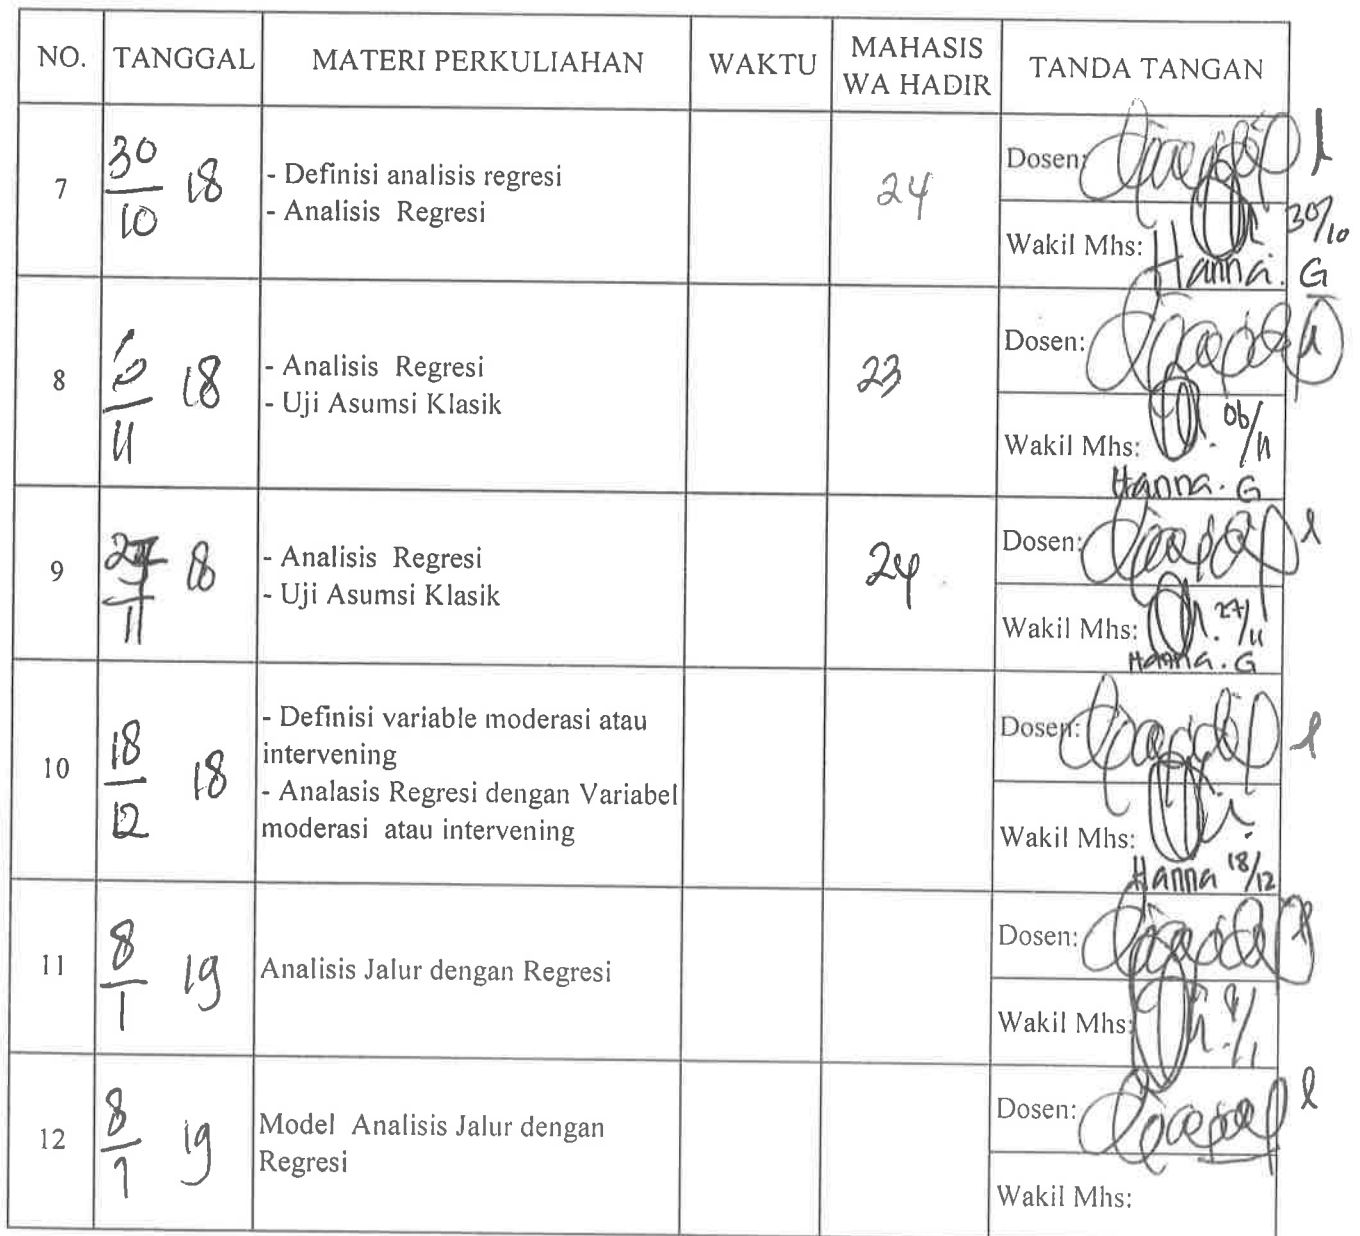 NO. TANGGAL MATERI PERKULIAHAN WAKTU MAHASIS WA HADIR TANDA TANGAN
7 30/10 18 - Definisi analisis regresi 24 Dosen:
- Analisis Regresi
Wakil Mhs: 30/10
Hanna. G
8 6/11 18 - Analisis Regresi 23 Dosen:
- Uji Asumsi Klasik
Wakil Mhs: 06/11
Hanna. G
9 27/11 18 - Analisis Regresi 24 Dosen:
- Uji Asumsi Klasik
Wakil Mhs: 27/11
Hanna. G
10 18/12 18 - Definisi variable moderasi atau Dosen:
intervening
- Analasis Regresi dengan Variabel
moderasi atau intervening
Wakil Mhs:
Hanna 18/12
11 8/1 19 Analisis Jalur dengan Regresi Dosen:
Wakil Mhs: 8/1
12 8/1 19 Model Analisis Jalur dengan Dosen:
Regresi
Wakil Mhs: